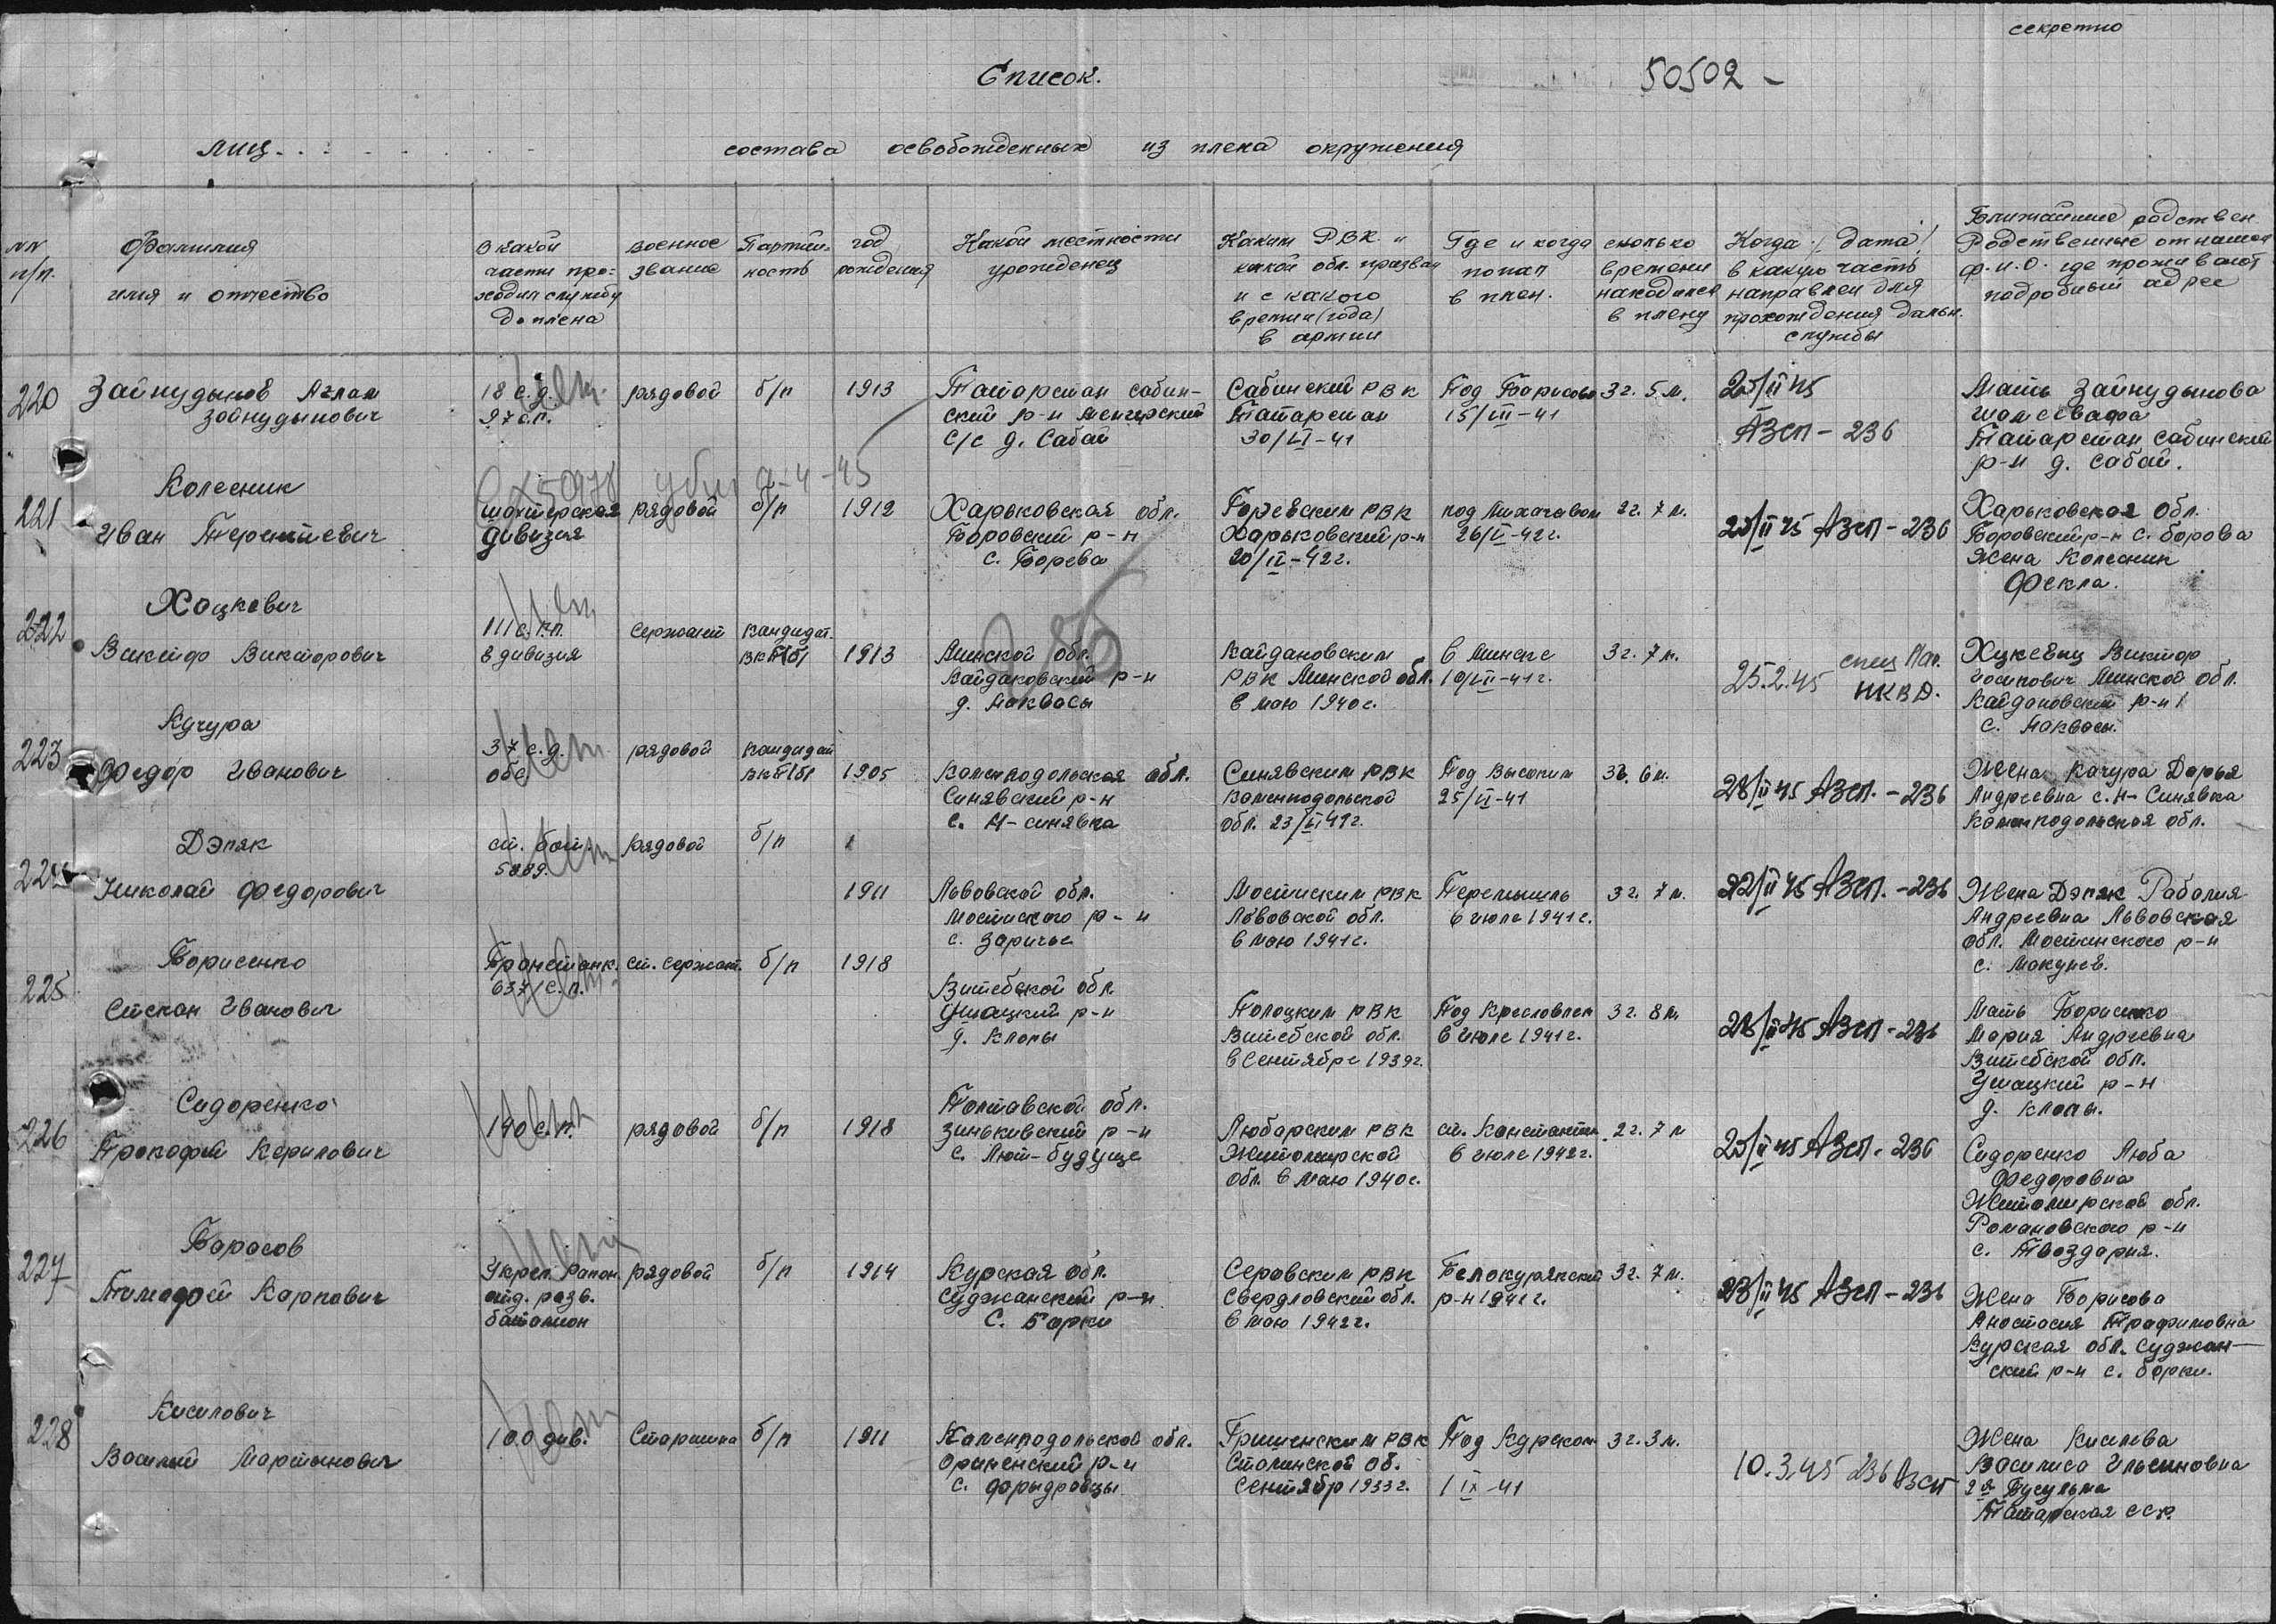 секретно
Список.
50502 -
лиц
состава освобожденных из плена окружения
NN
п/п.
Фамилия
имя и отчество
в какой
части про-
ходил службу
до плена
военное
звание
Партий-
ность
год
рождения
Какой местности
урожденец
Каким РВК и
какой обл. призван
и с какого
времени (года)
в армии
Где и когда
попал
в плен.
сколько
времени
находился
в плену
Когда (дата)
в какую часть
направлен для
прохождения дальн.
службы
Ближайшие родствен
Родственные отношен
ф.и.о. где проживают
подробный адрес
220
Зайнудынов Аглам
Зойнудынович
18 с.д.
97 с.п.
нет.
рядовой
б/п
1913
Татарстан сабин-
ский р-н Менгерский
с/с д. Сабай
Сабинский РВК
Татарстан
30/VI-41
Под Борисово
15/VII-41
3 г. 5 м.
25/II 45
АЗСП - 236
Мать Зайнудынова
Татарстан Сабинский
р-н д. Сабай.
221
Колесник
Иван Терентиевич
шахтерская
дивизия
убит 9-4-45
рядовой
б/п
1912
Харьковская обл.
Боровский р-н
с. Борева
РВК
Харьковский р-н
20/IV-42 г.
под
26/V-42 г.
2 г. 7 м.
25/II 45 АЗСП - 236
Харьковская обл.
Боровский р-н с. Борова
Жена Колесник
Фекла.
222
Хоцкевич
Виктор Викторович
нет
111 с.п.
8 дивизия
сержант
кандидат.
ВКП(б)
1913
Минской обл.
Кайдановский р-н
д. Маквасы
Кайдановским
РВК Минской обл.
в маю 1940 г.
в Минске
10/VII-41 г.
3 г. 7 м.
25.2.45 спец лаг.
НКВД.
Хцкевиц Виктор
Иосипович Минской обл.
Кайдановский р-н
с. Маквасы.
223
Кучура
Федор Иванович
37 с.д.
обс
нет
рядовой
кандидат
ВКП(б)
1905
Каменподольская обл.
Синявский р-н
с. Н-синявка
Синявским РВК
Каменподольской
обл. 23/VI 41 г.
Под Высоким
25/VI-41
3 г. 6 м.
28/II 45 АЗСП. - 236
Жена Качура Дарья
Андреевна с. Н-Синявка
Каменподольская обл.
224
Дэпяк
Николай Федорович
ст. бат.
5889.
нет
рядовой
б/п
1911
Львовской обл.
Мостиского р-н
с. Заричье
Мостиским РВК
Львовской обл.
в маю 1941 г.
Перемышль
в июле 1941 г.
3 г. 7 м.
22/II 45 АЗСП. - 236
Жена Дэпяк Рабалия
Андреевна Львовская
обл. Мостинского р-н
с. Макунев.
225
Борисенко
Степан Иванович
Бронетанк.
637 с.п.
нет.
ст. сержант.
б/п
1918
Витебской обл.
Ушацкий р-н
д. Клопы
Полоцким РВК
Витебской обл.
в сентябре 1939 г.
Под Креславлем
в июле 1941 г.
3 г. 8 м.
28/II 45 АЗСП - 236
Мать Борисенко
Мария Андреевна
Витебской обл.
Ушацкий р-н
д. Клопы.
226
Сидоренко
Прокофий Кирилович
190 с.п.
нет
рядовой
б/п
1918
Полтавской обл.
Зиньковский р-н
с. Лют-будуще
Любарским РВК
Житомирской
обл. в маю 1940 г.
ст. Константин.
в июле 1942 г.
2 г. 7 м
25/II 45 АЗСП - 236
Сидоренко Люба
Федоровна
Житомирской обл.
Романовского р-н
с. Твоздария.
227
Борасов
Тимофей Карпович
нет
Укреп. район.
отд. разв.
баталион
рядовой
б/п
1914
Курская обл.
Суджанский р-н
С. Борки
Серовским РВК
Свердловский обл.
в маю 1942 г.
Белокуракский
р-н 1941 г.
3 г. 7 м.
28/II 45 АЗСП - 236
Жена Борисова
Анастасия Трафимовна
Курская обл. Суджан-
ский р-н с. Борки.
228
Кисилович
Василий Мартынович
100 див.
нет
Старшина
б/п
1911
Каменподольской обл.
Орыненский р-н
с.
Гришенским РВК
Сталинской об.
Сентябр 1933 г.
Под Курском
1 IX-41
3 г. 3 м.
10.3.45 236 АЗСП
Жена Кисилева
Василиса Ильиновна
гр Бугульма
Татарская ССР.